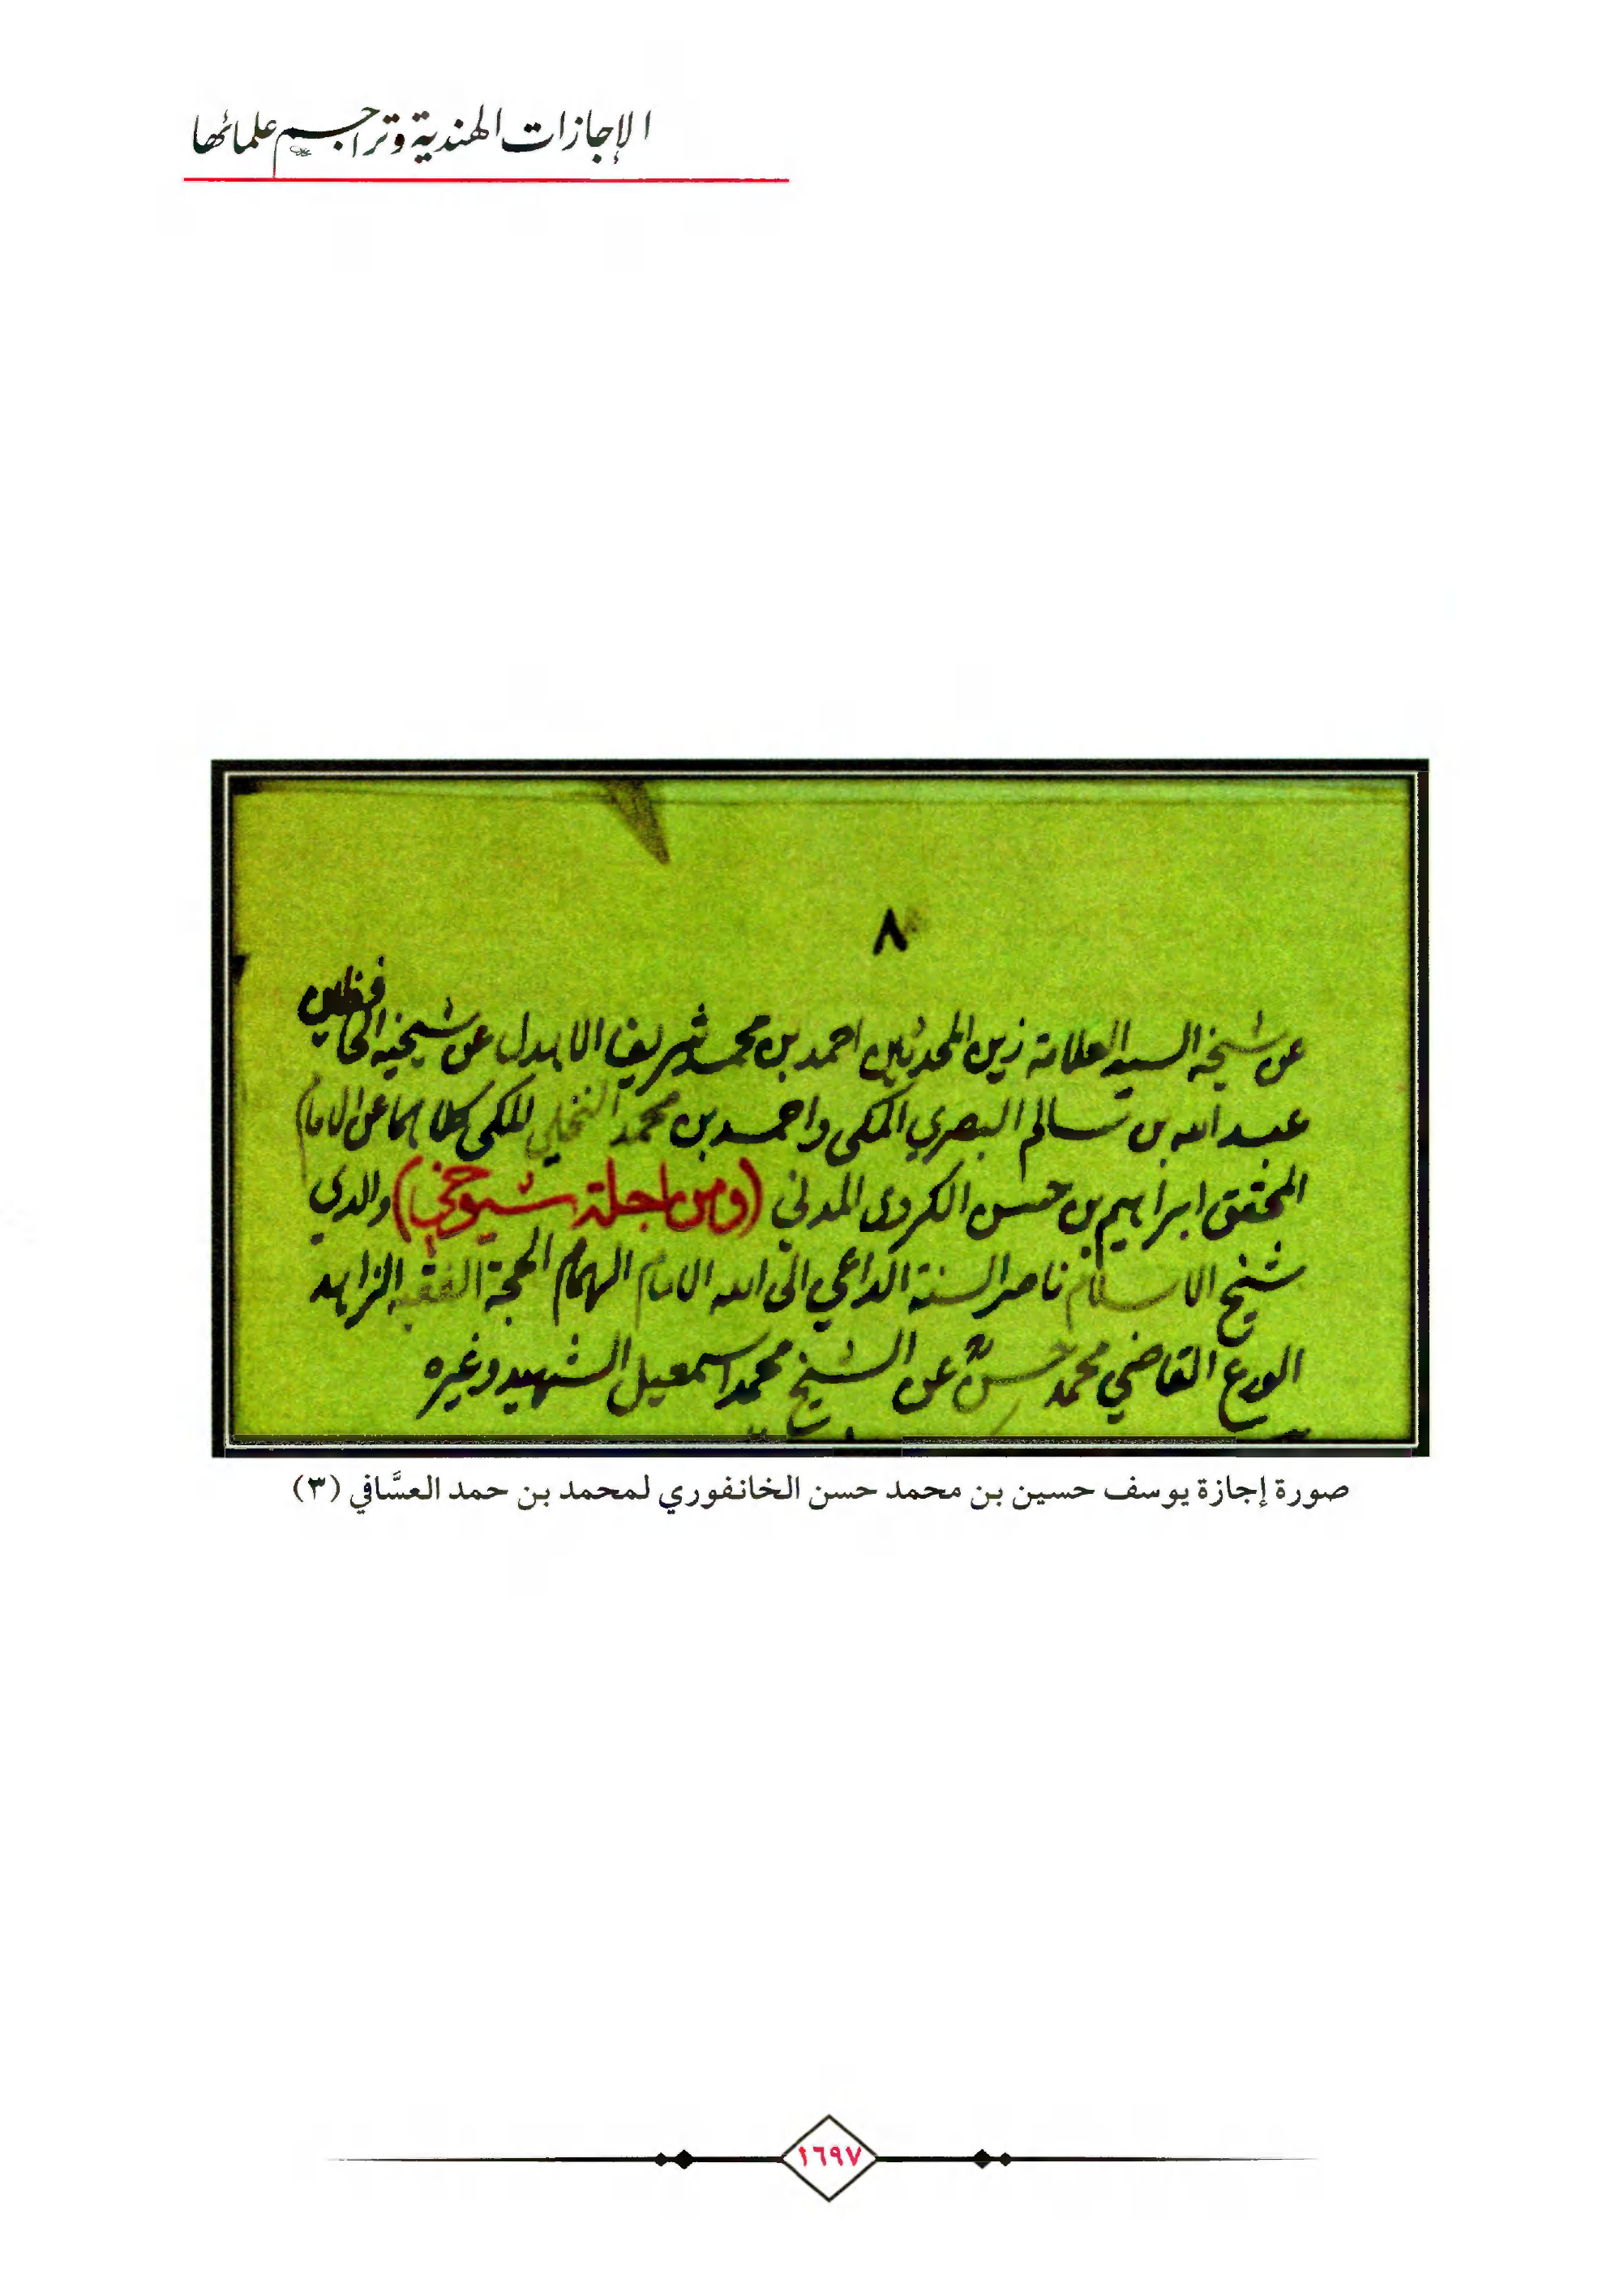 الإجازات الهندية وتراجم علمائها
٨
عن شيخه السيد العلامة زين المحدثين احمد بن محمد شريف الاهدل عن شيخيه الحافظين
عبد الله بن سالم البصري المكي واحمد بن محمد النخلي المكي كلاهما عن الامام
المحقق ابراهيم بن حسن الكردي المدني (ومن اجلة شيوخي) والدي
شيخ الاسلام ناصر السنة الداعي الى الله الامام الهمام الحجة الفقيه الزاهد
الورع القاضي محمد حسن عن الشيخ محمد اسمعيل الشهيد وغيره
صورة إجازة يوسف حسين بن محمد حسن الخانفوري لمحمد بن حمد العسَّافي (٣)
١٦٩٧